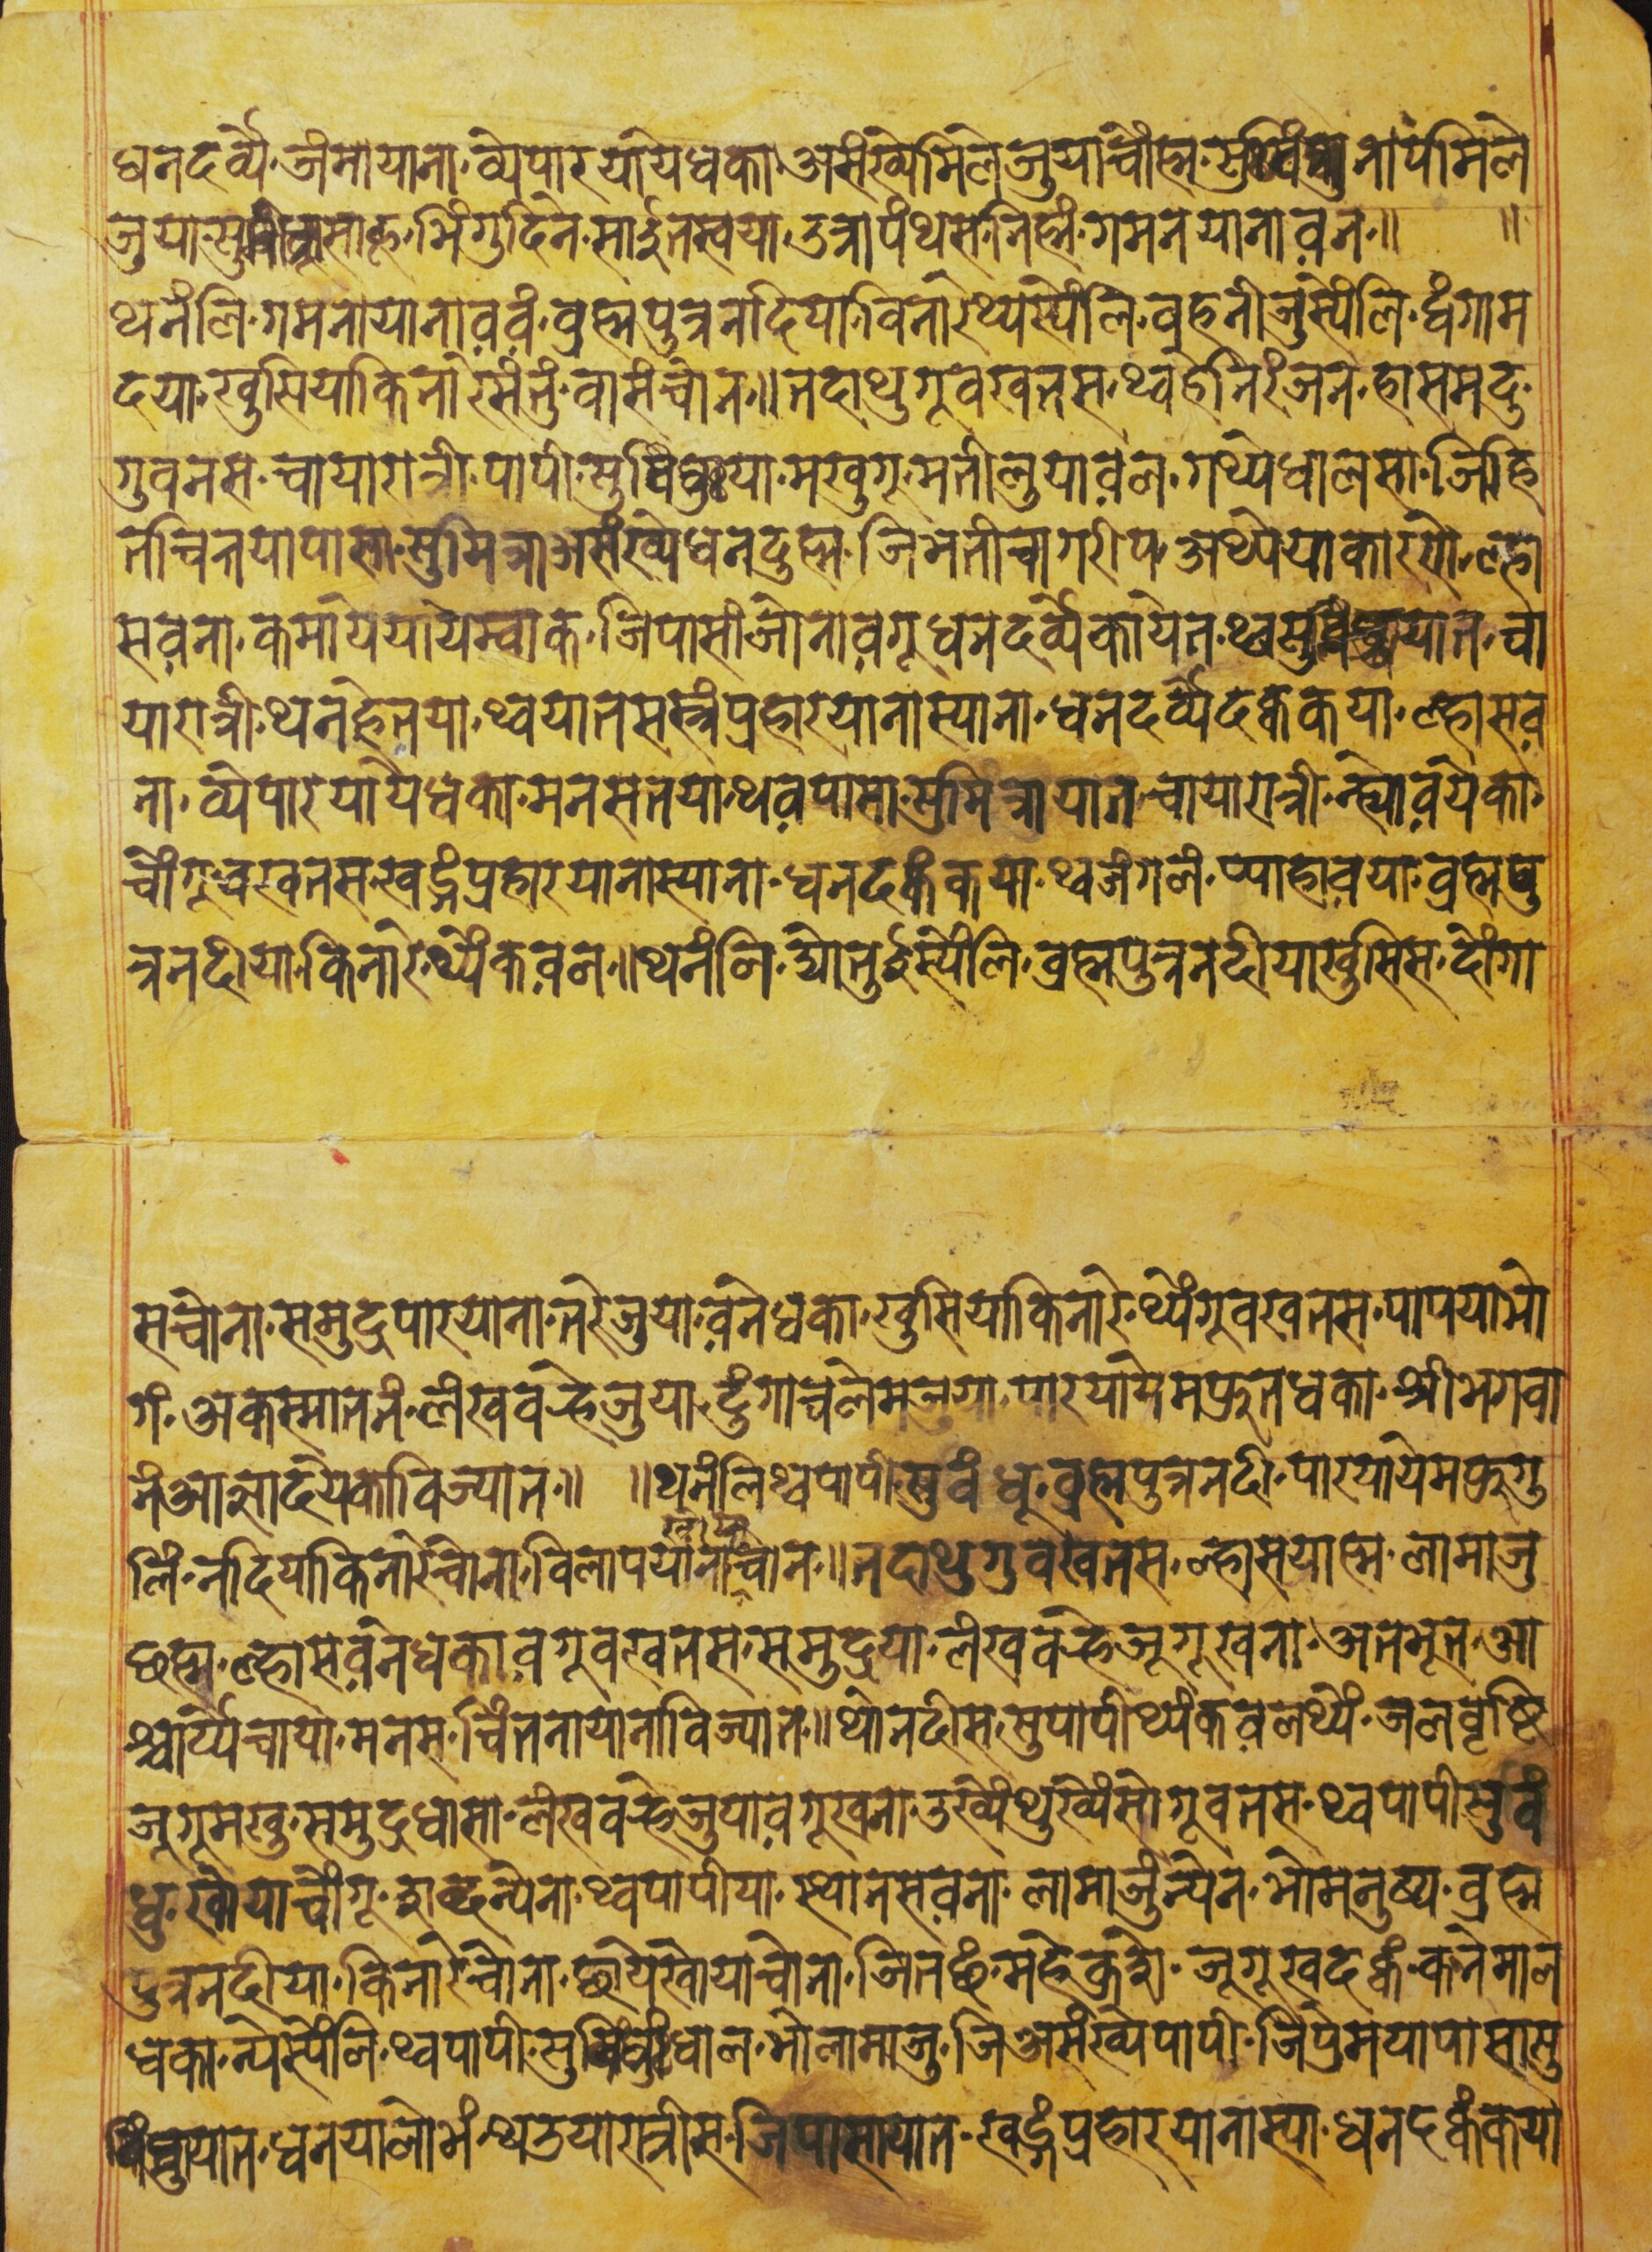 धनदर्व्य जंमायाना व्येपारयायेधका असंख्येमिलेजुयाचोंह्म नापंमिले
जुया साहू भिंगुदिन साईतस्वया उत्रापंथसनिह्मं गमनयानावन॥ ॥
थनंलि गमनायानाववं ब्रह्मपुत्रनदिया किनारेथ्यस्येंलि बहनीजुस्येंलि द्वंगाम
दया खुसियाकिनारेसंतुं वासंचोन॥ तदाथुगूवखतस थ्वहेनिरंजन हासमुद्र
गुवनस चायारात्री पापी या मखुगू मतीलुयावल गथ्येधालसा जिहि
तचित्तयापासा सुमित्रा असंख्येधनदुह्म जिभतीचागरीप अथ्येयाकारणे ल्हा
सवना कमायेयायेम्वाक जिपासांजोनावगू धनदर्व्येकायेत थ्व यात चा
यारात्री थनहेतया थ्वयातसस्त्रंप्रहारयानास्याना धनदर्व्यदक्वकया ल्हासव
ना व्येपारयायेधका मनसतया थवपासा सुमित्रायात चायारात्री न्ह्योवयेका
चोंगू वखतस खड्गंप्रहारयानास्याना धनदक्वंकया थ्वजंगलं प्याहावया ब्रह्मपु
त्रनदीया किनारे थ्येंकवल॥ थनंलि द्योतुईस्येंलि ब्रह्मपुत्रनदीयाखुसिस दोंगा
सचोना समुद्रपारयाना तरेजुया वनेधका खुसियाकिनारे थ्येंगूवखतस पापयाभो
गं अकस्मातनं लंखवह्रेजुया दुंगाचलेमजुया पारयायेमफुतधका श्रीभगवा
नंआज्ञादयेकाविज्यात॥ ॥थनंलिथ्वपापी सुबंधू ब्रह्मपुत्रनदी पारयायेमफुगु
लिं नदियाकिनारेचोना विलापयानाचोन॥ तदाथुगुवखतस ल्हासयाह्म लामाजु
छह्म ल्हासेवनेधका वगूवखतस समुद्रया लंखवह्रेजूगूखना अतभूत आ
श्चार्य्यचाया मनस चिंतनायानाविज्यात॥ थोनदीस सुपापीथ्येंकवलथ्यें जलवृष्टि
जूगूमखु समुद्रधासा लंखवह्रेजुयावगूखना उख्येंथुख्येंसोगूवतस थ्वपापीसुबं
धु खोयाचोंगू शब्दन्येना थ्वपापीया स्थानसवना लामाजुंन्येन भोमनुष्य ब्रह्म
पुत्रनदीया किनारेचोना छायेखोयाचोना जितछं जूगूखदक्वं कनेमाल
धका न्येस्येंलि थ्वपापी धाल भोलामाजु जिअसंख्येपापी जिप्रेमयापासासु
यात धनयालोभं थउयारात्रीस जिपासायात खड्गंप्रहारयानास्या धनदक्वंकया